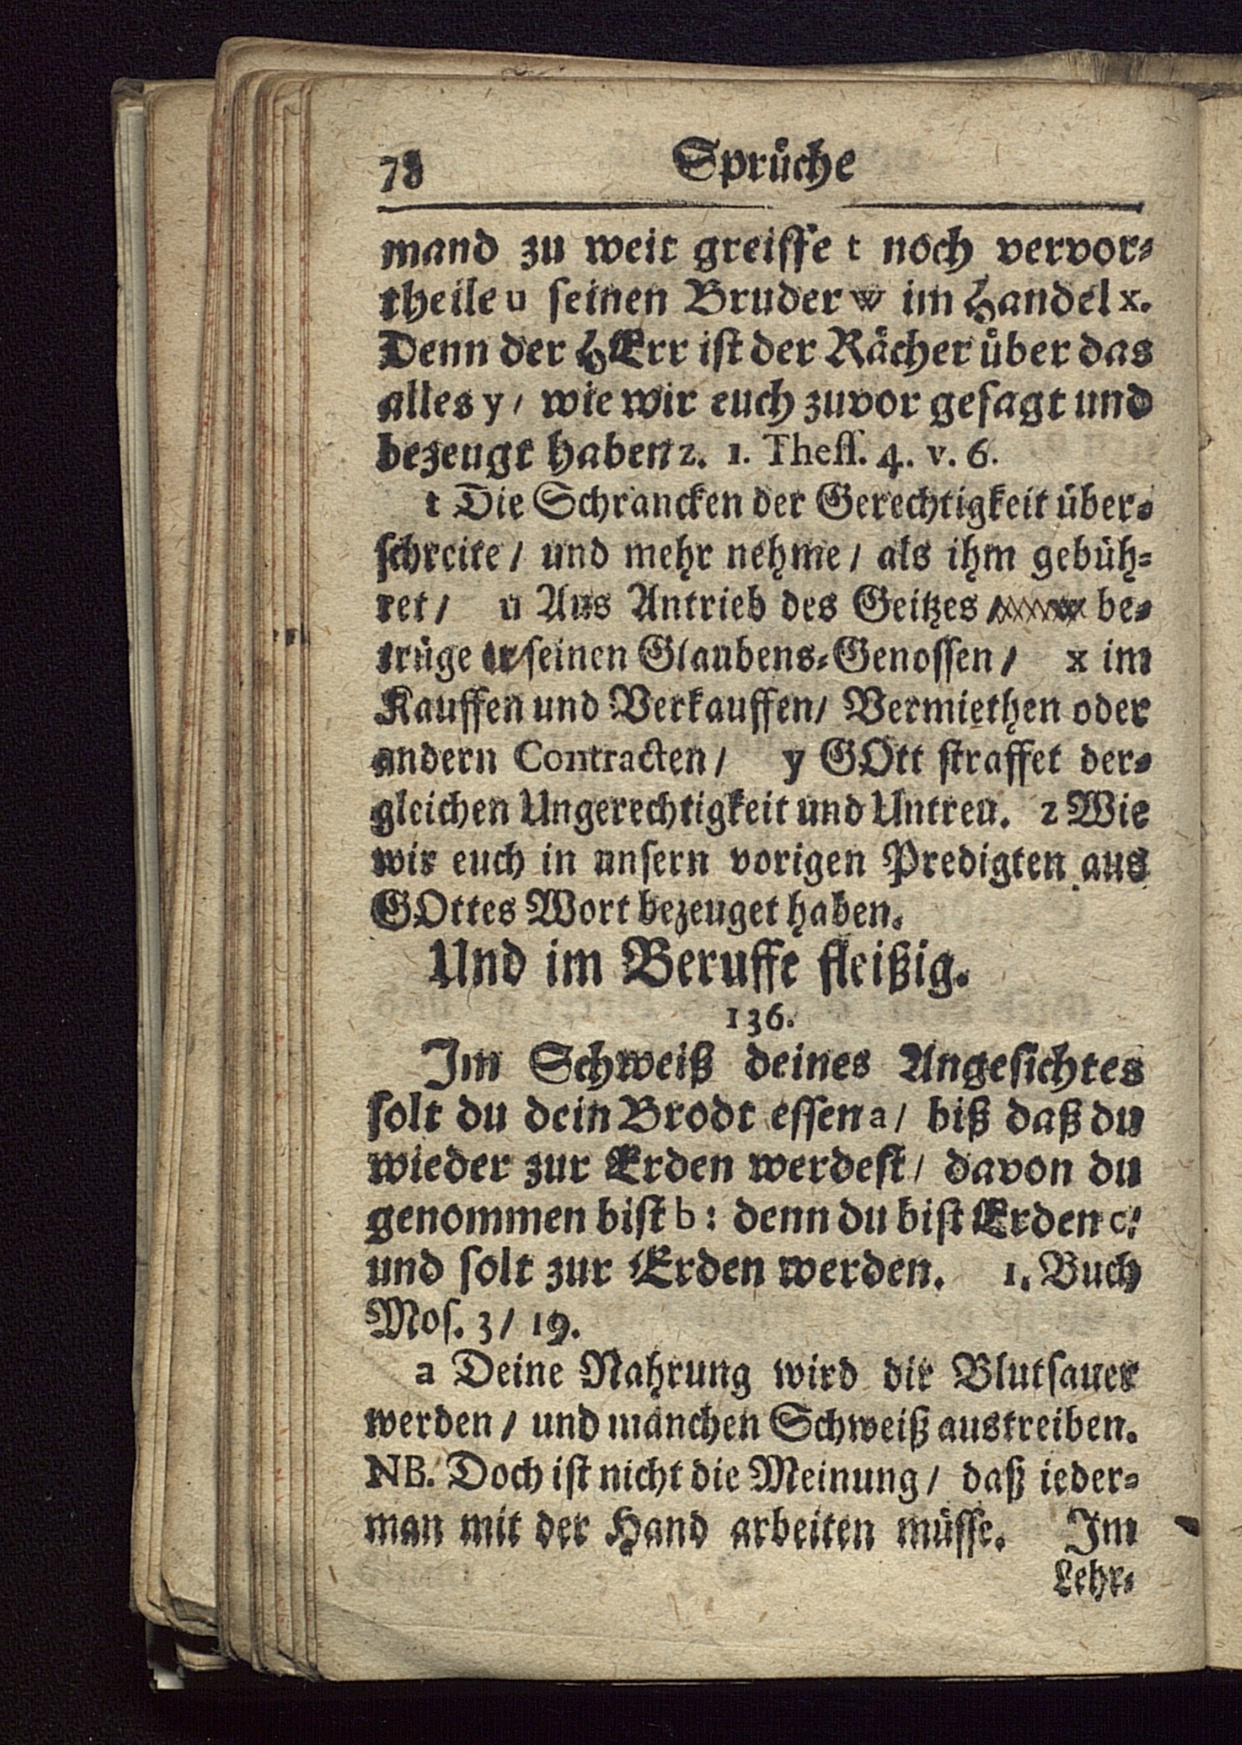 78 Sprůche
mand zu weit greiffe t noch vervor-
theile u seinen Bruder w im Handel x.
Denn der HErr ist der Rächer ůber das
alles y / wie wir euch zuvor gesagt und
bezeugt haben z. 1. Thess. 4. v. 6.
t Die Schrancken der Gerechtigkeit über-
schreite / und mehr nehme / als ihm gebüh-
ret / u Aus Antrieb des Geitzes / be-
trüge seinen Glaubens-Genossen / x im
Kauffen und Verkauffen / Vermiethen oder
andern Contracten / y GOtt straffet der-
gleichen Ungerechtigkeit und Untreu. z Wie
wir euch in unsern vorigen Predigten aus
GOttes Wort bezeuget haben.
Und im Beruffe fleißig.
136.
Im Schweiß deines Angesichtes
solt du dein Brodt essen a / biß daß du
wieder zur Erden werdest / davon du
genommen bist b : denn du bist Erden c /
und solt zur Erden werden. 1. Buch
Mos. 3 / 19.
a Deine Nahrung wird dir Blutsauer
werden / und manchen Schweiß austreiben.
NB. Doch ist nicht die Meinung / daß ieder-
man mit der Hand arbeiten müsse. Im
Lehr-